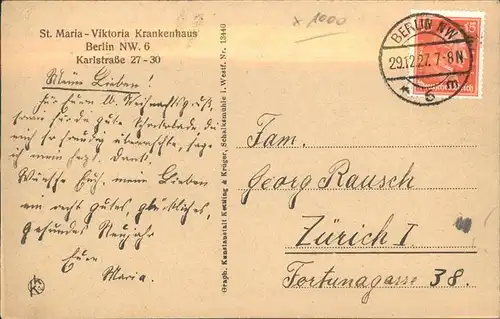 St. Maria-Viktoria Krankenhaus
Berlin NW. 6
Karlstraße 27-30
Meine Lieben!
Für Euern lb. Weihnachtsgruß,
sowie für die gute Schokolade, die
mich so freudig überraschte, sage
ich innigst Dank.
Wünsche Euch, meine Lieben
ein recht gutes, glückliches,
gesundes Neujahr
Eure
Maria.
Graph. Kunstanstalt Kettling & Krüger, Schalksmühle i. Westf. Nr. 13440
x 1000
BERLIN NW
29.12.27. 7-8 N
* 6
15
Fam.
Georg Rausch
Zürich I
Fortunagasse 38.